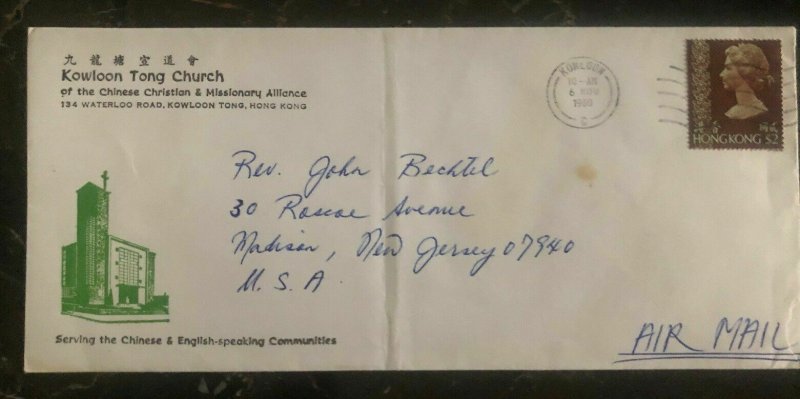 九龍塘宣道會
Kowloon Tong Church
of the Chinese Christian & Missionary Alliance
134 WATERLOO ROAD, KOWLOON TONG, HONG KONG
KOWLOON
10-AM
6 NOV
1980
C
HONG KONG $2
Rev. John Bechtel
30 Roscoe Avenue
Madison, New Jersey 07940
U. S. A
Serving the Chinese & English-speaking Communities
AIR MAIL